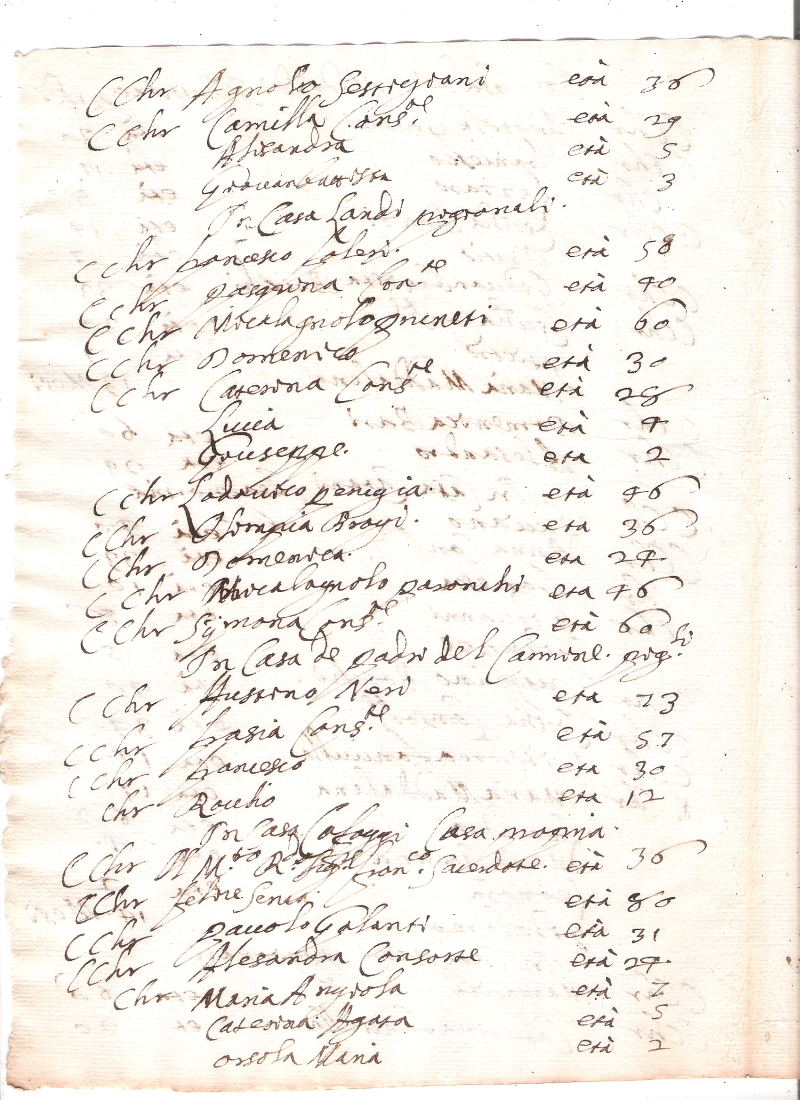 CChr Agnolo Sestigiani età 36
CChr Camilla Cons.te età 29
Alisandra età 5
Giovanbattista età 3
In Casa Landi pigionali.
CChr francesco età 58
CChr pasquina Con.te età 40
CChr Micalagnolo età 60
CChr Domenico età 30
CChr Caterina Cons.te età 28
Lucia età 4
Giuseppe. eta 2
CChr Lodovico età 46
CChr Olimpia Brogi. eta 36
CChr Domenica. eta 24
CChr Micalagnolo paronchi eta 46
CChr Symona Cons.te età 60
In Casa de padri del Carmine. pig.li
CChr Austino Neri eta 73
CChr Cons.te età 57
CChr francesco eta 30
Chr Roccho eta 12
In Casa Casa propria.
CChr Il M.to R.do fran.co Sacerdote. età 36
CChr felice età 80
CChr pavolo Galanti età 31
CChr Alesandra Consorte età 24
Chr Maria Angiola età 7
Caterina Agata età 5
Orsola Maria età 2